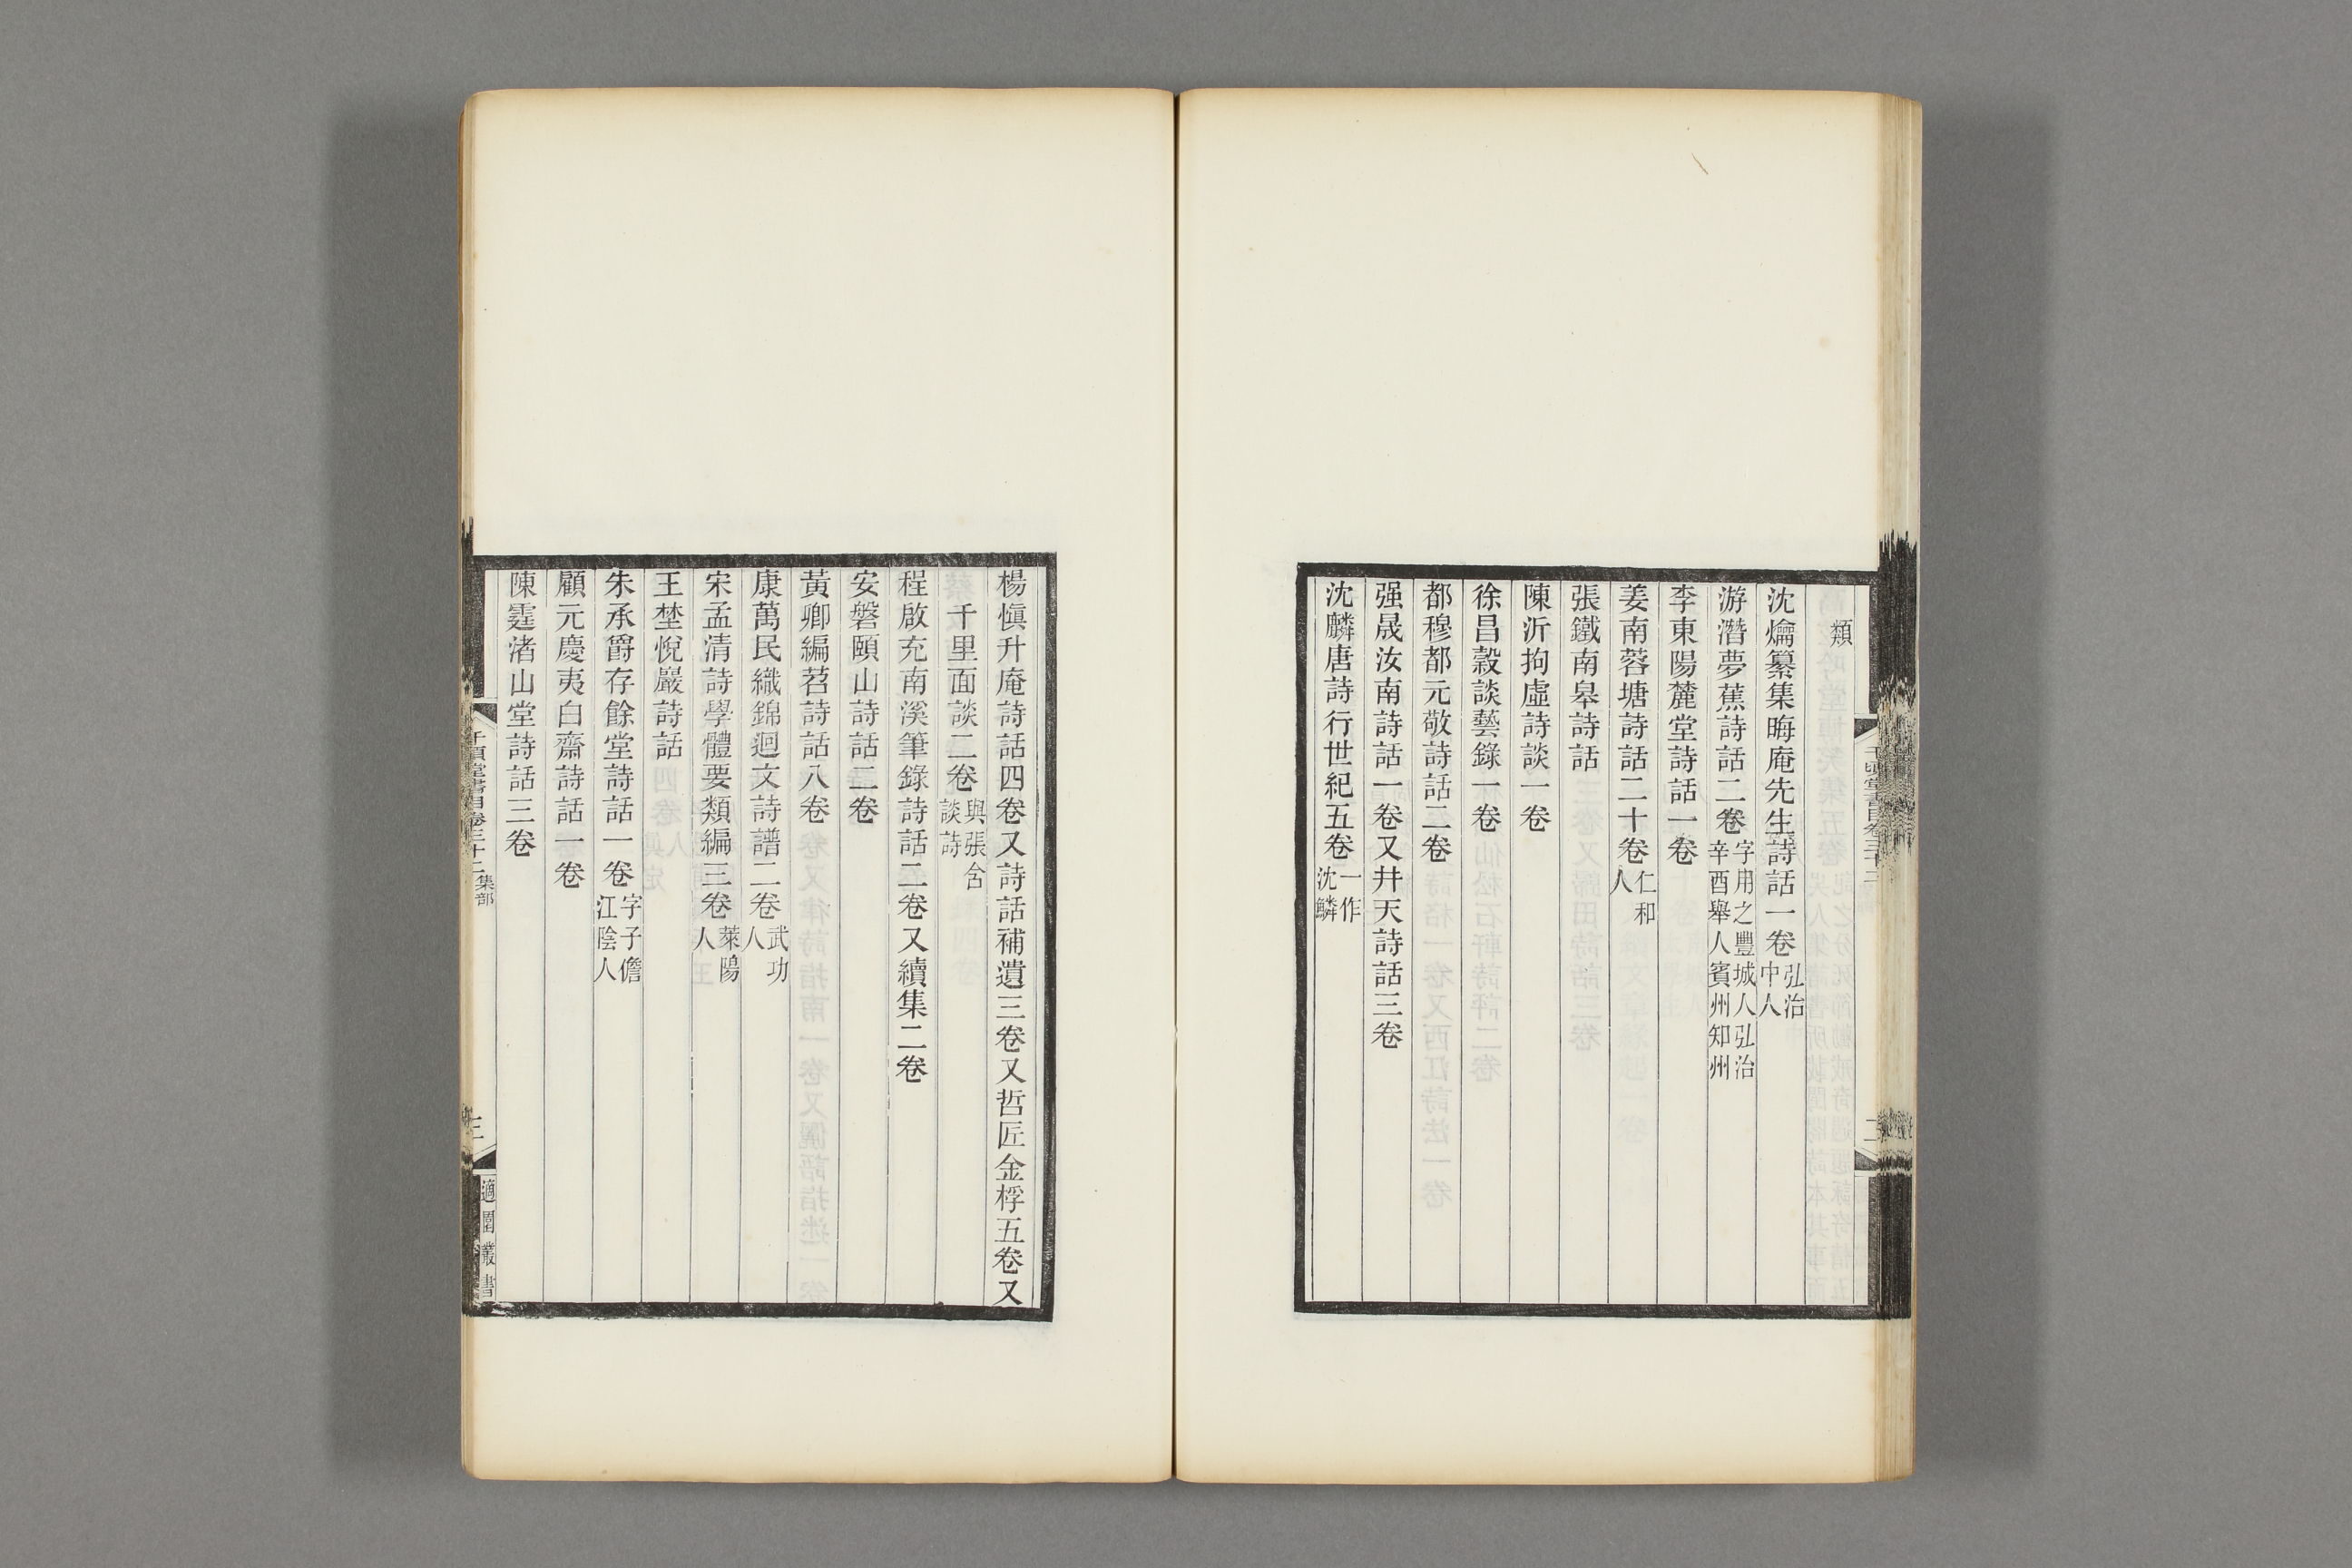 類
沈爚纂集晦庵先生詩話一卷弘治中人
游潛夢蕉詩話二卷字用之豐城人弘治辛酉舉人賓州知州
李東陽麓堂詩話一卷
姜南蓉塘詩話二十卷仁和人
張鐵南皋詩話
陳沂拘虛詩談一卷
徐昌穀談藝錄一卷
都穆都元敬詩話二卷
强晟汝南詩話一卷又井天詩話三卷
沈麟唐詩行世紀五卷一作沈鱗
楊慎升庵詩話四卷又詩話補遺三卷又哲匠金桴五卷又
千里面談二卷與張含談詩
程啟充南溪筆錄詩話二卷又續集二卷
安磐頤山詩話二卷
黃卿編苕詩話八卷
康萬民織錦迴文詩譜二卷武功人
宋孟清詩學體要類編三卷萊陽人
王埜悅嚴詩話
朱承爵存餘堂詩話一卷字子儋江陰人
顧元慶夷白齋詩話一卷
陳霆渚山堂詩話三卷
千頃堂書目卷三十二 集部
三
適園叢書